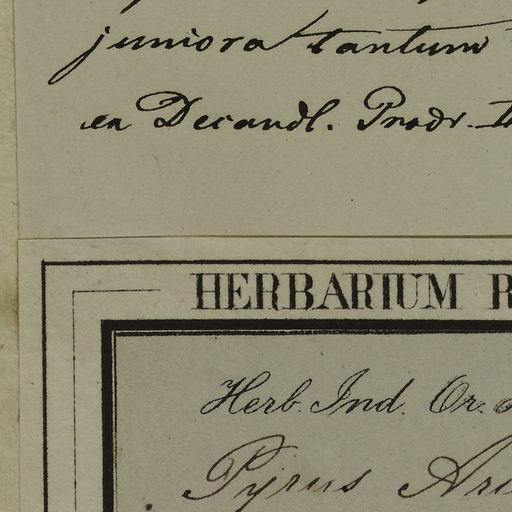 juniora tantum
ex Decandl. Prodr.
HERBARIUM R
Herb. Ind. Or.
Pyrus Ari